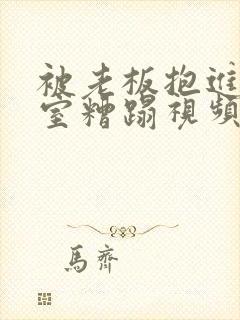 被老板抱进
室糟蹋視頻
馬齊